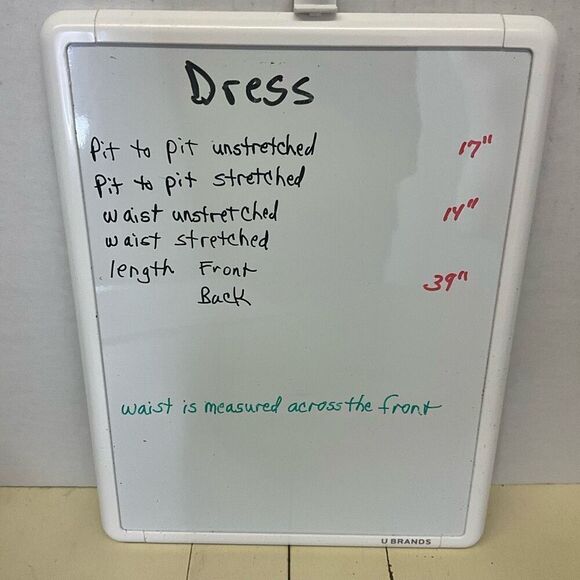 Dress
Pit to pit unstretched 17"
Pit to pit stretched
waist unstretched 14"
waist stretched
length Front
39"
Back
waist is measured across the front
U BRANDS